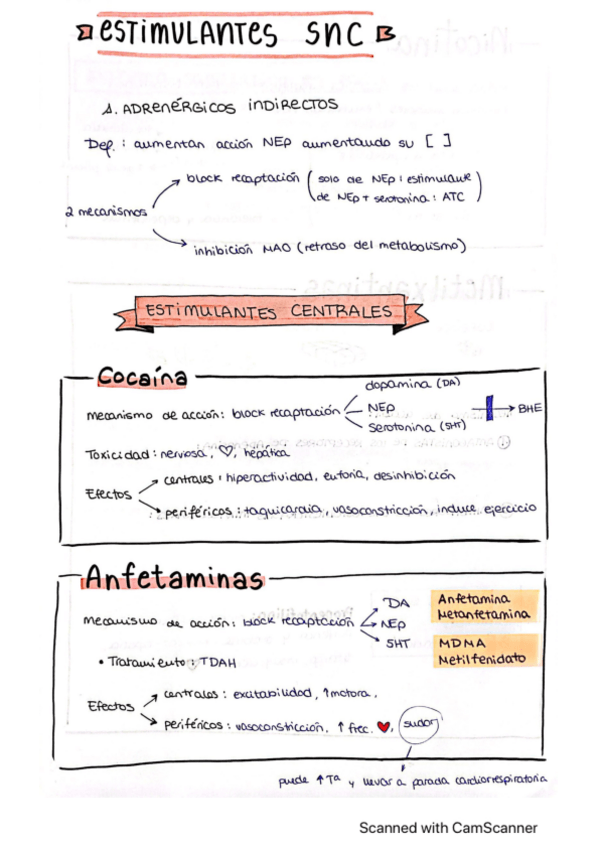 ESTIMULANTES SNC
1. ADRENÉRGICOS INDIRECTOS
Dep. : aumentan acción NEp aumentando su [ ]
2 mecanismos
block recaptación ( solo de NEp : estimulante
de NEp + serotonina : ATC )
inhibición MAO (retraso del metabolismo)
ESTIMULANTES CENTRALES
Cocaína
mecanismo de acción: block recaptación
dopamina (DA)
NEP
Serotonina (5HT)
BHE
Toxicidad : nerviosa, ♡, hepática
Efectos
centrales : hiperactividad, euforia, desinhibición
periféricos : taquicardia, vasoconstricción, induce ejercicio
Anfetaminas
mecanismo de acción: block recaptación
DA
NEp
5HT
Anfetamina
Metanfetamina
MDMA
Metilfenidato
• Tratamiento : TDAH
Efectos
centrales : excitabilidad, ↑motora.
periféricos : vasoconstricción, ↑ frec. ♥, sudor
puede ↑ Tª y llevar a parada cardiorrespiratoria
Scanned with CamScanner